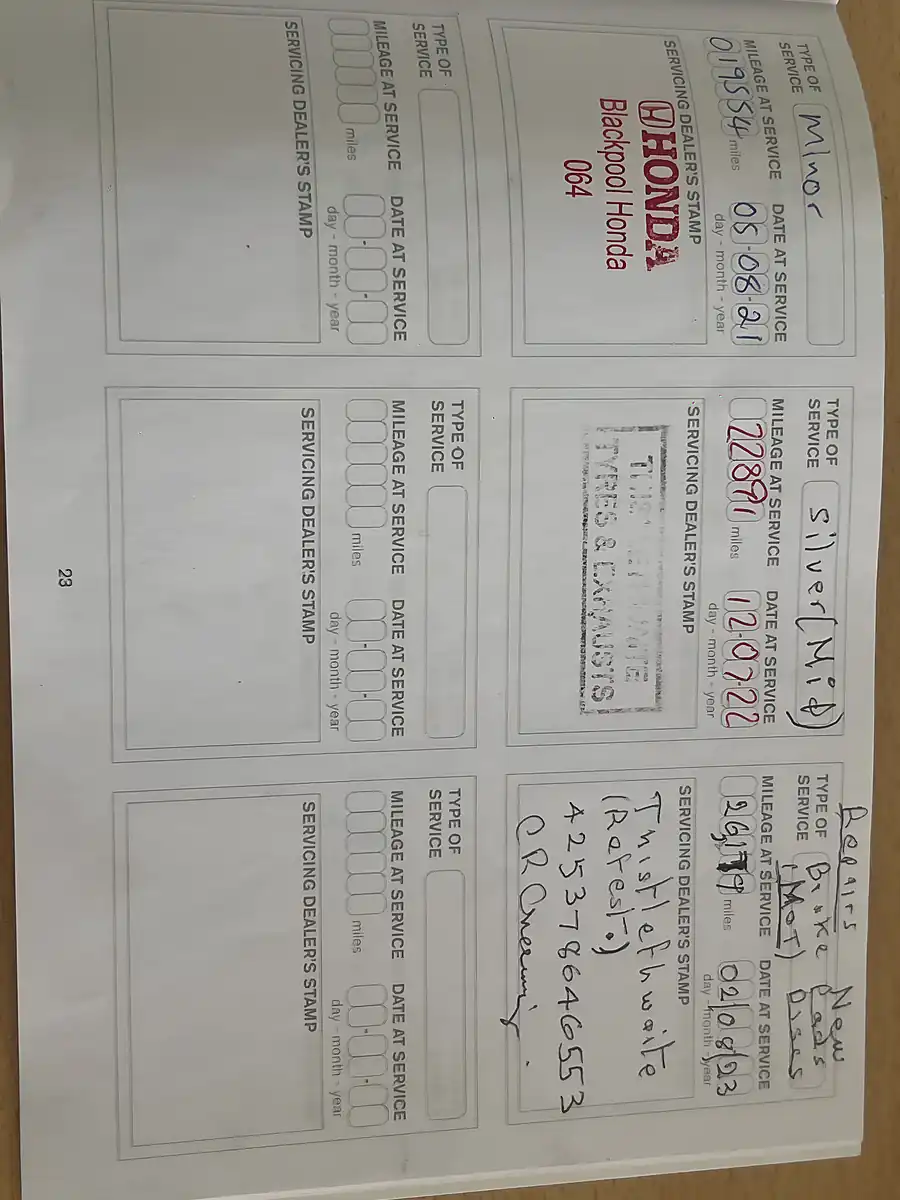 TYPE OF
SERVICE
Minor
MILEAGE AT SERVICE
DATE AT SERVICE
019554 miles
05-08-21
day - month - year
SERVICING DEALER'S STAMP
HONDA
Blackpool Honda
064
TYPE OF
SERVICE
silver(Mid)
MILEAGE AT SERVICE
DATE AT SERVICE
22891 miles
12-07-22
day - month - year
SERVICING DEALER'S STAMP
TYRES & EXHAUSTS
Repairs New
TYPE OF
SERVICE
Brake Pads
(MOT) Discs
MILEAGE AT SERVICE
DATE AT SERVICE
miles
02/08/23
day - month - year
SERVICING DEALER'S STAMP
Thistlethwaite
(Retest.)
425378646553
TYPE OF
SERVICE
MILEAGE AT SERVICE
DATE AT SERVICE
miles
day - month - year
SERVICING DEALER'S STAMP
TYPE OF
SERVICE
MILEAGE AT SERVICE
DATE AT SERVICE
miles
day - month - year
SERVICING DEALER'S STAMP
TYPE OF
SERVICE
MILEAGE AT SERVICE
DATE AT SERVICE
miles
day - month - year
SERVICING DEALER'S STAMP
23